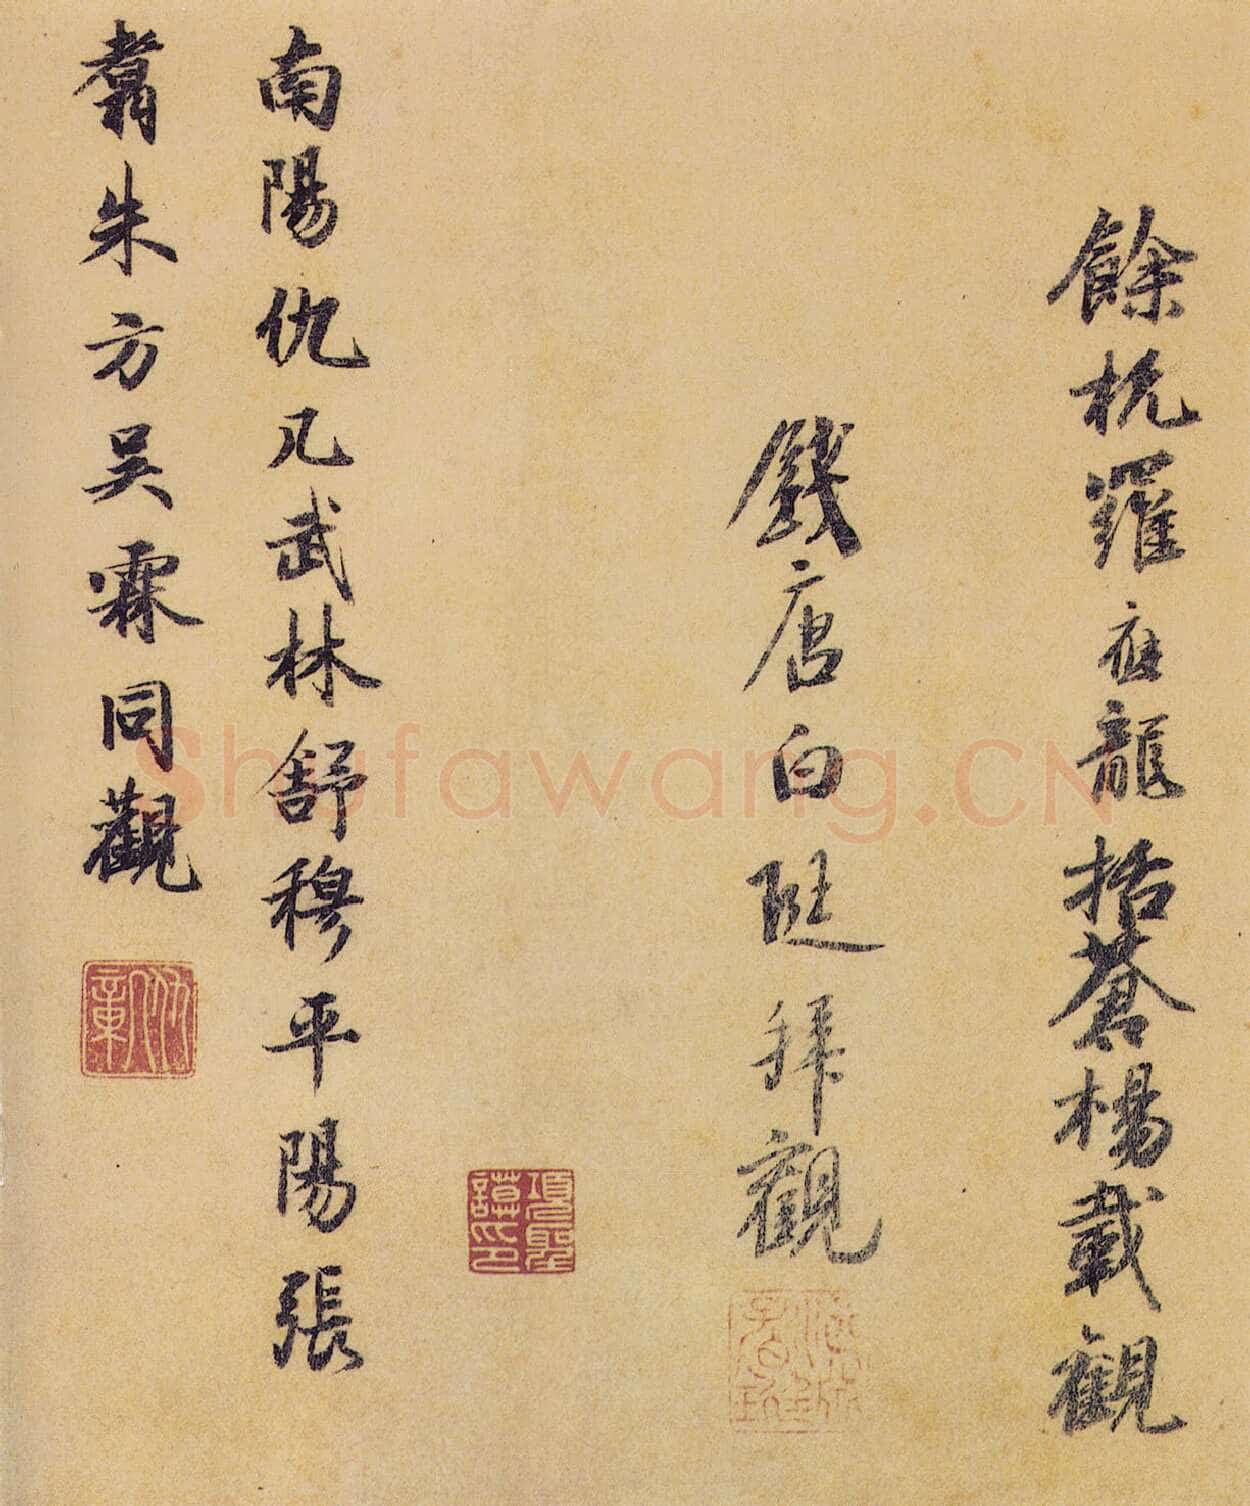 餘杭羅應龍括蒼楊載觀
錢唐白珽拜觀
項聖謨印
南陽仇几武林舒穆平陽張
翥朱方吳霖同觀
Shufawang.CN